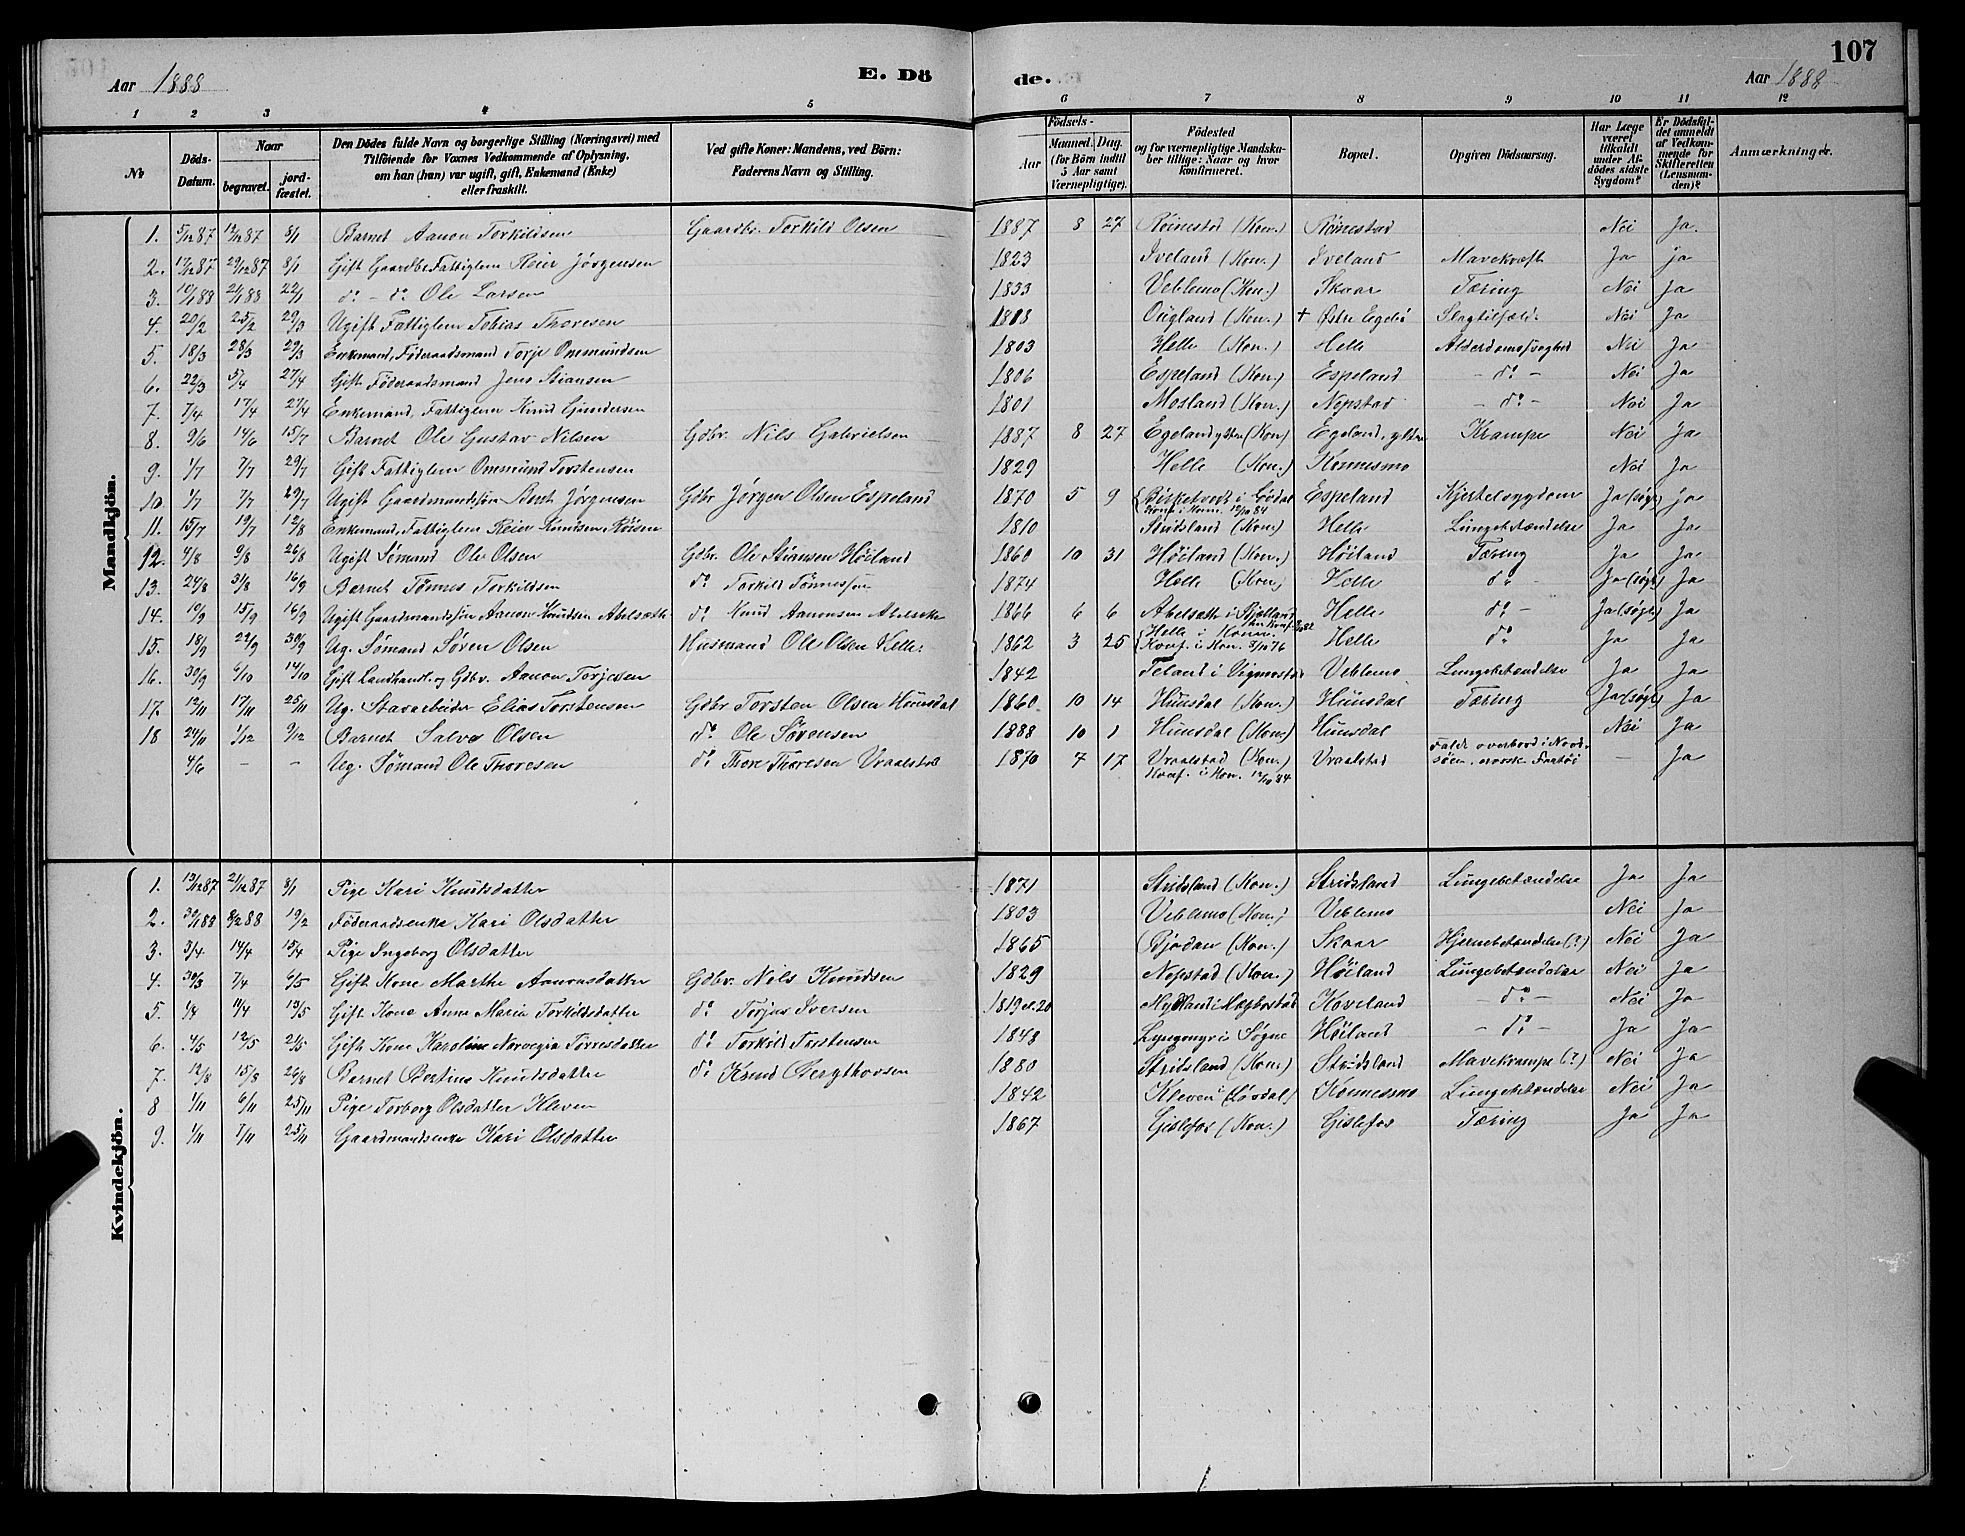 107
Aar 1888
E. Dö
de.
Aar 1888
1 2 3 4 5
6 7 8 9 10 11 12
No
Döds-Datum.
Naar
begravet.
jordfæstet.
Den Dödes fulde Navn og borgerlige Stilling (Næringsvei) med
Tilföiende for Voxnes Vedkommende af Oplysning,
om han (hun) var ugift, gift, Enkemand (Enke)
eller fraskilt.
Ved gifte Koner: Mandens, ved Börn:
Faderens Navn og Stilling.
Födsels-
Aar
Maaned. Dag.
(for Börn indtil
5 Aar samt
Værnepligtige).
Födested
og for værnepligtige Mandska-
ber tillige: Naar og hvor
konfirmeret.
Bopæl.
Opgiven Dödsaarsag.
Har Læge
været
tilkaldt
under Af-
dödes sidste
Sygdom?
Er Dödsfal-
det anmeldt
af Vedkom-
mende for
Skifteretten
(Lensman-
den)?
Anmærkninger.
Mandkjön.
1. 5/12 87 12/12 87 8/1 Barnet Aanon Torkildsen Gaardbr. Torkild Olsen 1887 8 27 Röinestad (Kon.) Röinestad Nei Ja
2. 17/12 87 29/12 87 8/1 Gift Gaardbr. Fattiglem Reier Jørgensen 1823 Iveland (Kon.) Iveland Mavekræft Ja Ja
3. 10/1 88 21/1 88 22/1 do - do Ole Larsen 1833 Veblemo (Kon.) Skaar Tæring Nei Ja
4. 20/2 25/2 29/3 Ugift Fattiglem Tobias Thoresen 1808 Øugland (Kon.) + Østre Egebø Slagtilfælde Nei Ja
5. 18/3 28/3 29/3 Enkemand, Föderaadsmand Torje Ommundsen 1803 Helle (Kon.) Helle Alderdomssvaghed Nei Ja
6. 22/3 5/4 27/4 Gift Föderaadsmand Jens Stiansen 1806 Espeland (Kon.) Espeland - do - Nei Ja
7. 7/4 17/4 27/4 Enkemand, Fattiglem Knud Gundersen 1801 Mosland (Kon.) Nopstad - do - Nei Ja
8. 9/6 14/6 15/7 Barnet Ole Gustav Nilsen Gdbr. Nils Gabrielsen 1887 8 27 Egeland, ytter (Kon) Egeland, ytter Krampe Nei Ja
9. 1/7 7/7 29/7 Gift Fattiglem Ommund Torstensen 1829 Helle (Kon.) Konnesmo Nei Ja
10. 1/7 7/7 29/7 Ugift Gaardmandssøn Bent Jørgensen Gdbr Jørgen Olsen Espeland 1870 5 9 Birketvedt i Løvdal Espeland Kjertelsygdom Ja (søgt) Ja
Konf. i Kon. 12/10 84
11. 15/7 19/7 12/8 Enkemand, Fattiglem Reier Knudsen Røisen 1810 Stridsland (Kon.) Helle Lungebetændelse Ja Ja
12. 4/8 9/8 26/8 Ugift Sømand Ole Olsen Gdbr. Ole Stiansen Høiland 1860 10 31 Høiland (Kon.) Høiland Tæring Ja Ja
13. 24/8 31/8 16/9 Barnet Tönnes Torkildsen do Torkild Tönnessen 1874 Helle (Kon) Helle do Ja (søgt) Ja
14. 10/9 15/9 16/9 Ugift Gaardmandssøn Aanon Knudsen Abelsæth do Knud Aanonsen Abelseth 1866 6 6 Abelsæth i Bjelland Helle do - Ja (søgt) Ja
15. 18/9 22/9 30/9 Ug. Sømand Søren Olsen Husmand Ole Olsen Helle 1862 3 25 Helle i Konn. Helle do Ja Ja
Konf. i Kon. 3/10 76
16. 30/9 6/10 14/10 Gift Landhandl. og Gdbr. Aanon Torjesen 1842 Teland i Vigmostad Veblemo Lungebetændelse Ja Ja
17. 12/11 17/11 25/11 Ug. Stavarbeider Elias Torstensen Gdbr Torsten Olsen Hunsdal 1860 10 14 Hunsdal (Kon.) Hunsdal Tæring Ja (søgt) Ja
18 24/11 1/12 9/12 Barnet Salve Olsen do Ole Sørensen 1888 10 1 Hunsdal (Kon.) Hunsdal Nei Ja
4/6 - - Ug. Sømand Ole Thoresen do Thore Thoresen Vraalstad 1870 7 17 Vraalstad (Kon.) Vraalstad Faldt overbord i Nord-
søen, norsk Fartöi - Ja
Konf. i Kon. 12/10 84
Kvindekjön.
1. 13/12 87 21/12 87 8/1 Pige Kari Knudsdatter 1871 Stridsland (Kon.) Stridsland Lungebetændelse Ja Ja
2. 30/1 88 8/2 88 19/2 Föderaadsenke Kari Olsdatter 1803 Veblemo (Kon.) Veblemo Nei Ja
3. 3/4 14/4 15/4 Pige Ingeborg Olsdatter 1865 Bjodan (Kon.) Skaar Hjernebetændelse (?) Nei Ja
4. 30/3 7/4 6/5 Gift Kone Marthe Aanonsdatter Gdbr. Nils Knudsen 1829 Nopstad (Kon.) Høiland Lungebetændelse Nei Ja
5. 1/4 11/4 13/5 Gift Kone Anne Maria Torkildsdatter do Torjus Iversen 1819 el. 20 Mydland i Hægbostad Koveland - do - Nei Ja
6. 4/5 12/5 21/5 Gift Kone Karoline Norvegia Torresdatter do Torkild Torstensen 1848 Lyngmyr i Søgne Høiland - do - Ja Ja
7. 12/8 15/8 26/8 Barnet Bertine Knudsdatter do Knud Bergthorsen 1880 Stridsland (Kon.) Stridsland Mavekrampe (?) Nei Ja
8 1/11 6/11 25/11 Pige Torborg Olsdatter Kleven 1842 Kleven i Løvdal Konnesmo Lungebetændelse Nei Ja
9. 1/11 7/11 25/11 Gaardmandsenke Kari Olsdatter 1867 Gislefos (Kon.) Gislefos Tæring Ja Ja